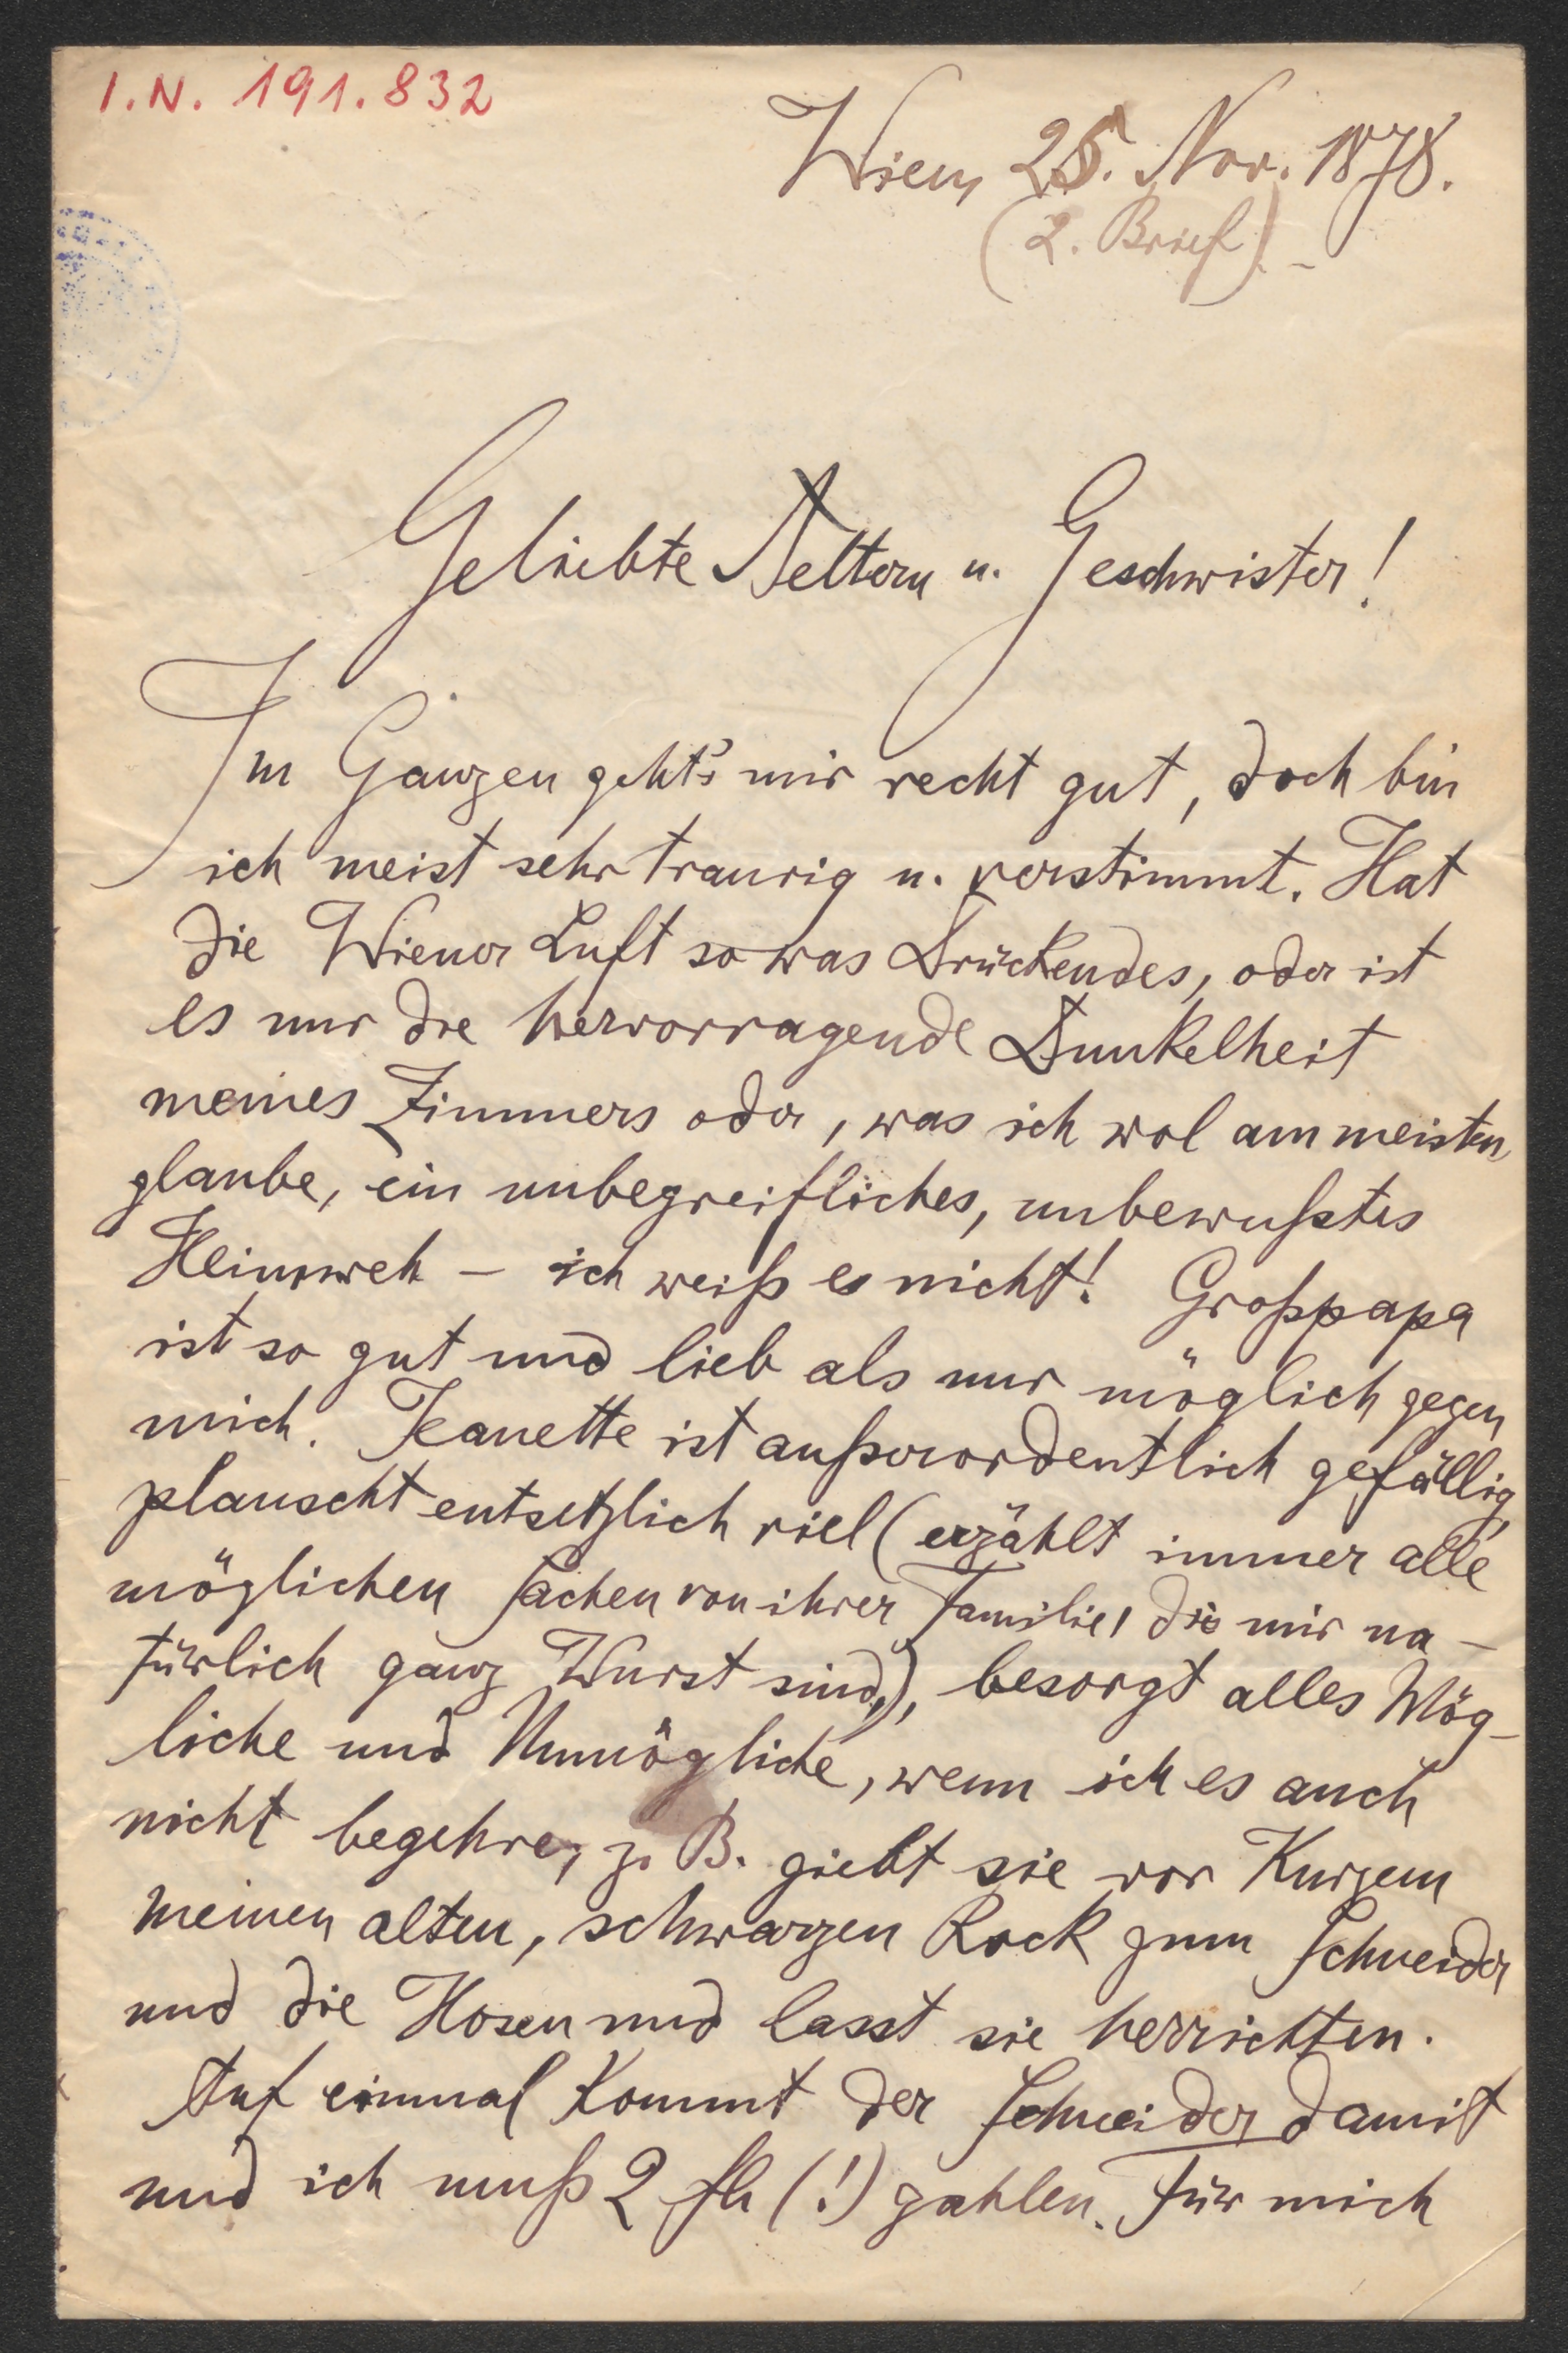 I.N. 191.832
Wien, 25. Nov. 1878.
(2. Brief). –
Geliebte Aeltern u. Geschwister!
Im Ganzen geht's mir recht gut, doch bin
ich meist sehr traurig u. verstimmt. Hat
die Wiener Luft so was Drückendes, oder ist
es nur die hervorragende Dunkelheit
meines Zimmers oder, was ich wol am meisten
glaube, ein unbegreifliches, unbewußtes
Heimweh – ich weiß es nicht! Großpapa
ist so gut und lieb als nur möglich gegen
mich. Jeanette ist außerordentlich gefällig,
plauscht entsetzlich viel (erzählt immer alle
möglichen Sachen von ihrer Familie, die mir na-
türlich ganz Wurst sind,), besorgt alles Mög-
liche und Unmögliche, wenn ich es auch
nicht begehre, z. B. giebt sie vor Kurzem
meinen alten, schwarzen Rock zum Schneider
und die Hosen und lasst sie herrichten.
Auf einmal kommt der Schneider damit
und ich muß 2 fl (!) zahlen. Für mich